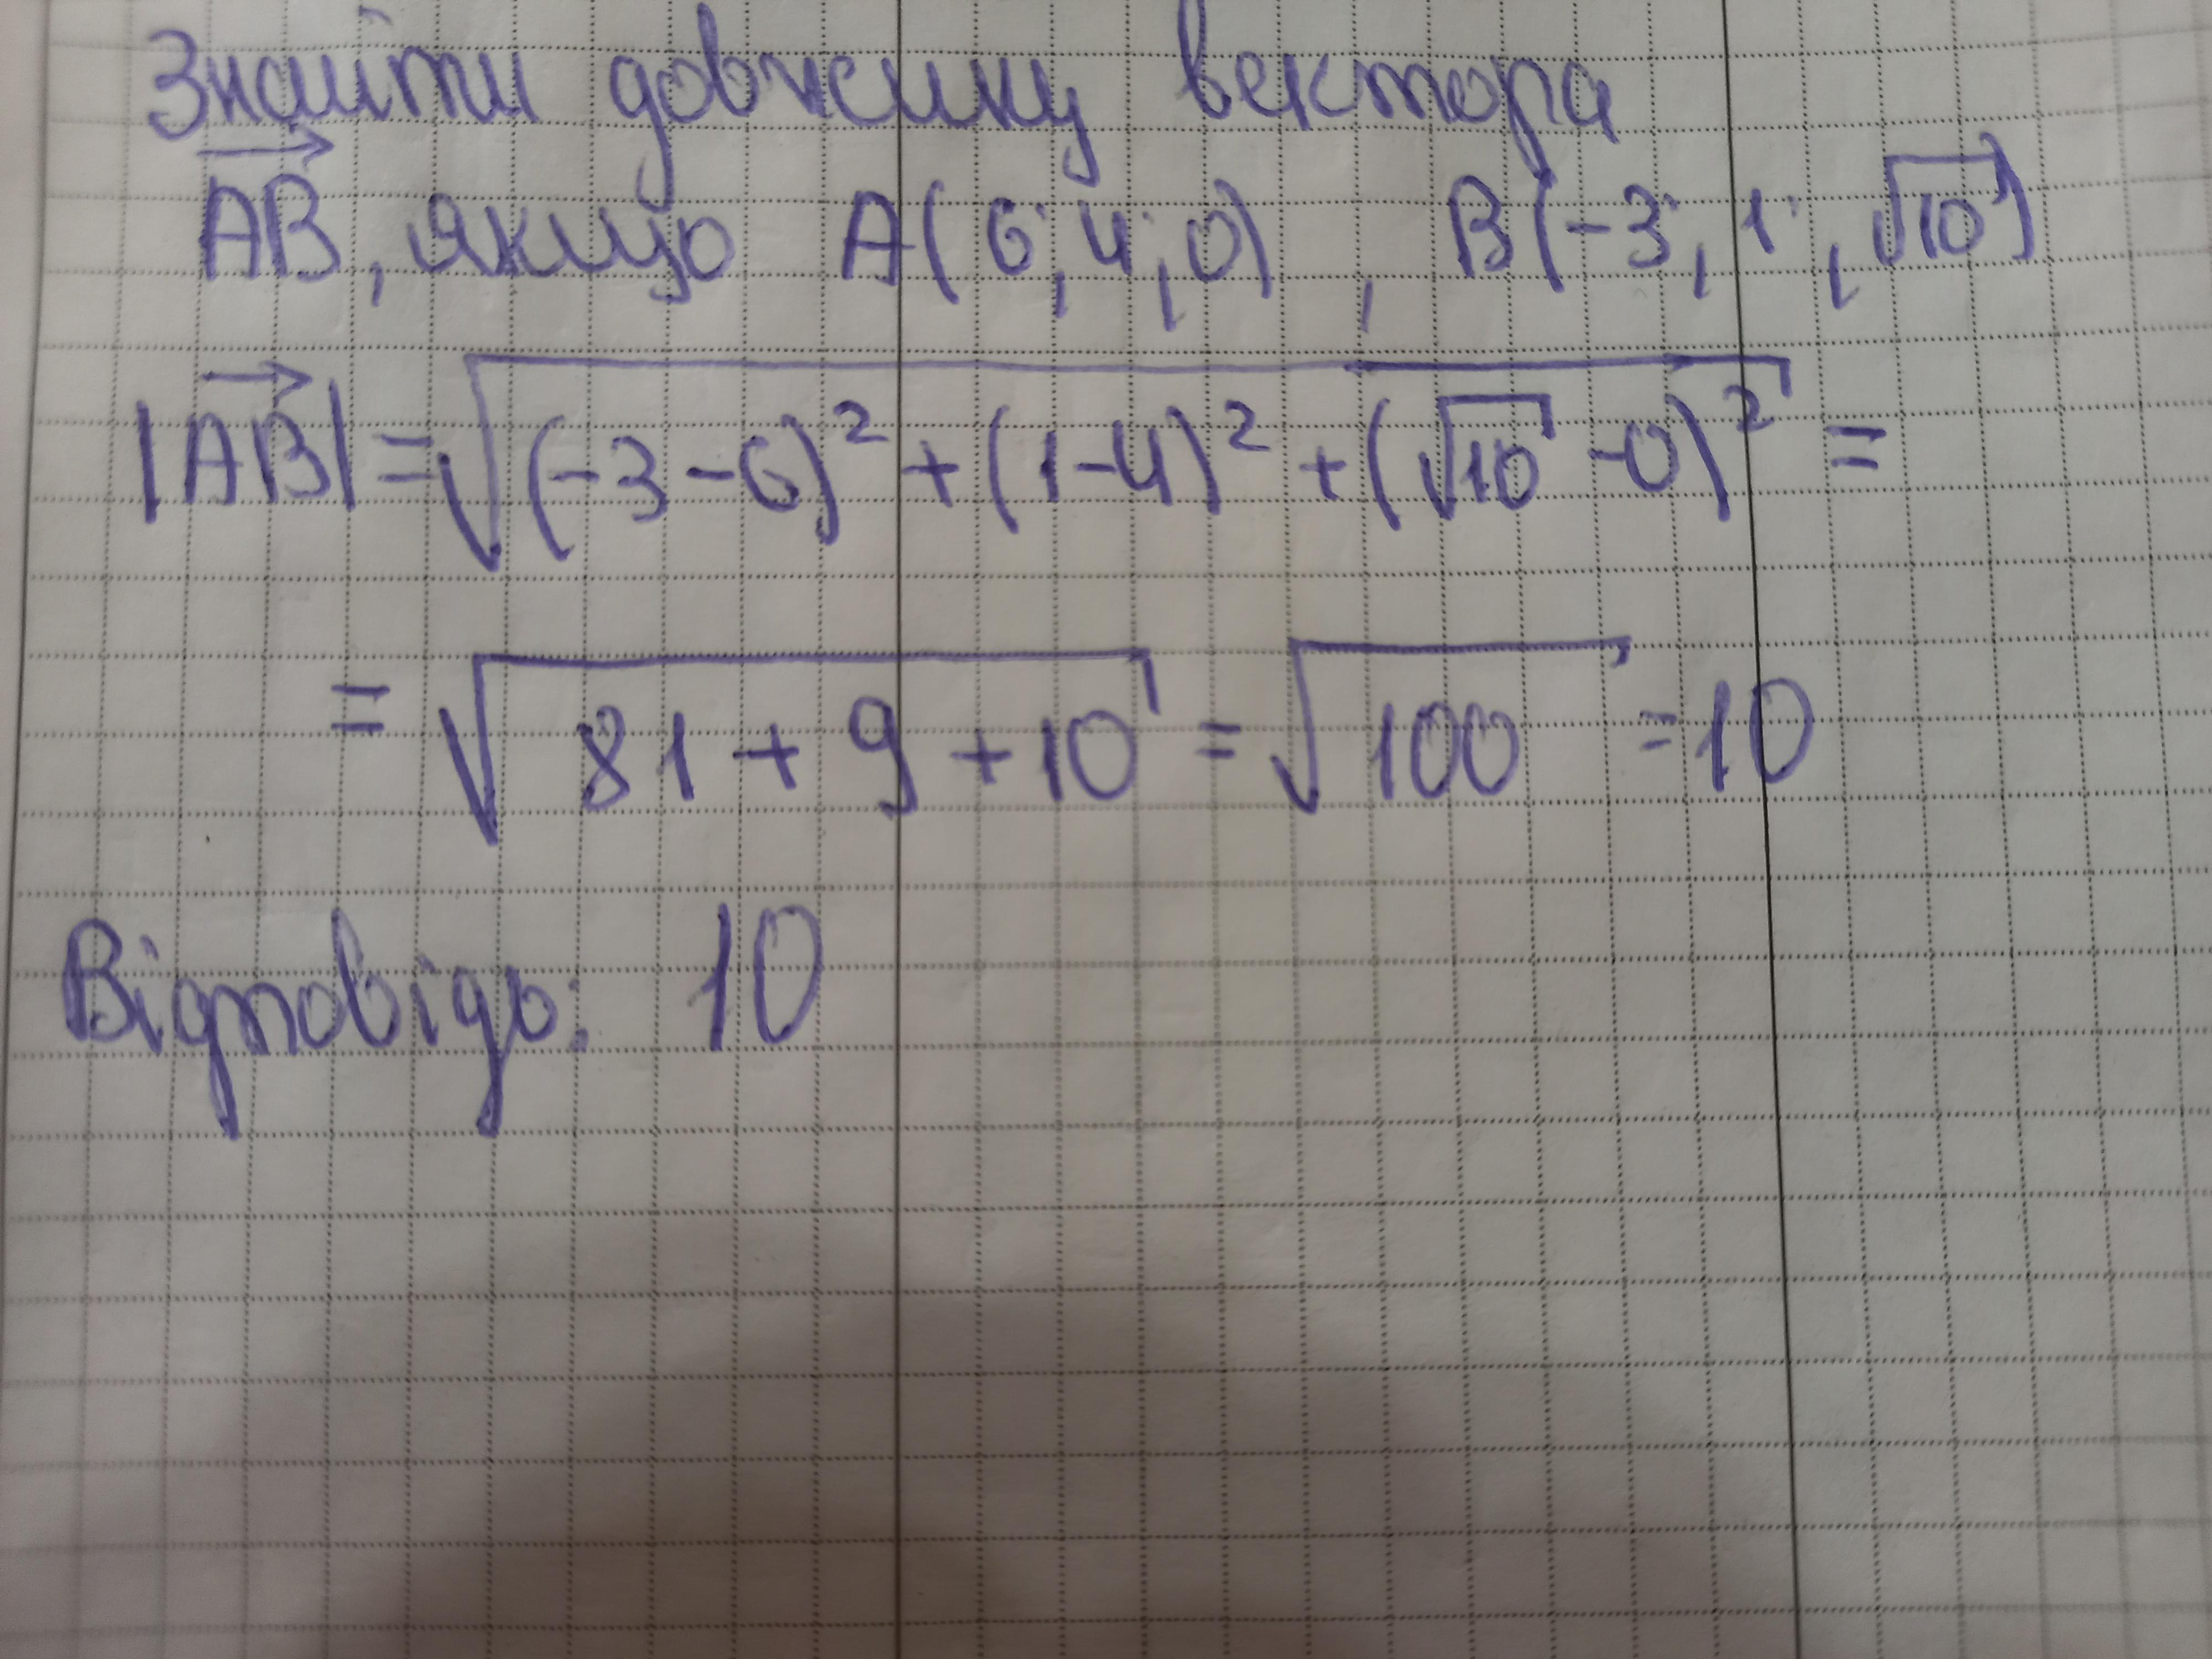 Знайти довжину вектора
AB, якщо A(6;4;0), B(-3;1;√10)
|AB|=√((-3-6)²+(1-4)²+(√10-0)²)=
=√(81+9+10)=√100=10
Відповідь: 10